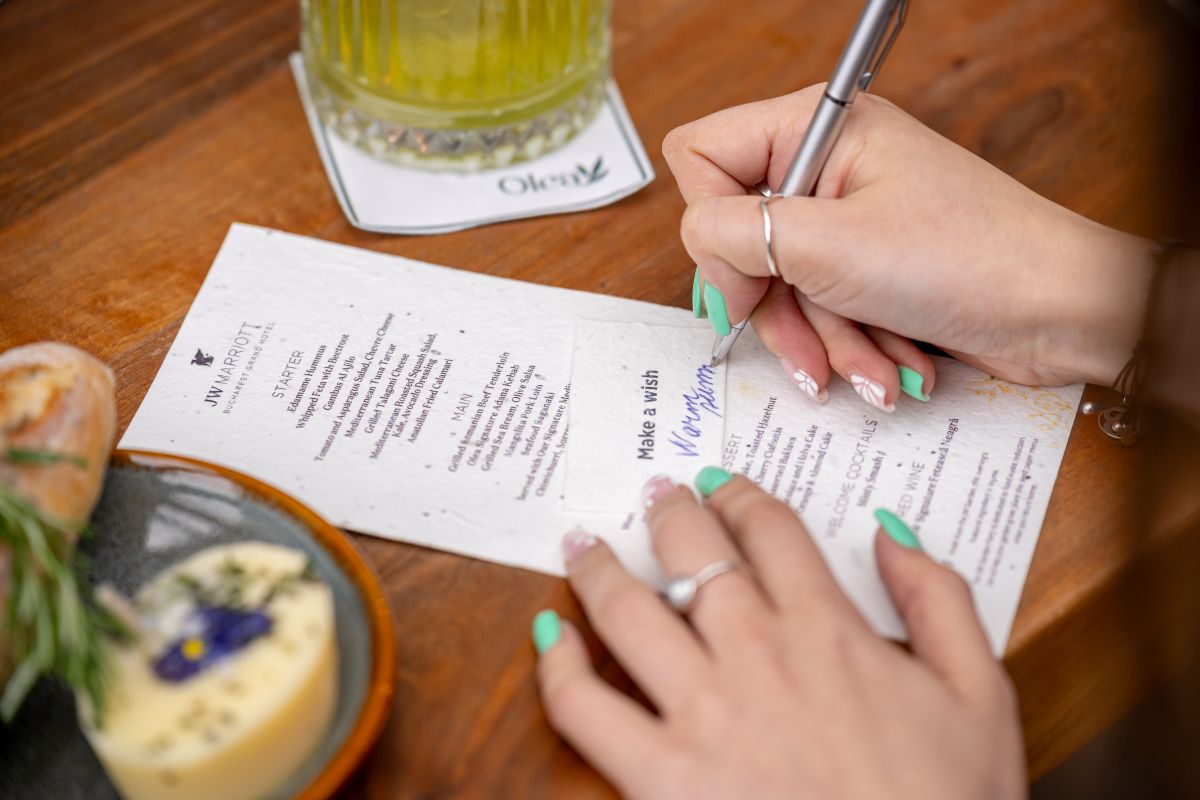 Olea
JW MARRIOTT
BUCHAREST GRAND HOTEL
STARTER
Edamame Hummus
Whipped Feta with Beetroot
Gambas Al Ajilo
Tomato and Asparagus Salad, Chevre Cheese
Mediterranean Tuna Tartar
Grilled Talagani Cheese
Mediterranean Roasted Squash Salad,
Kale, Avocado Dressing
Anatolian Fried Calamari
MAIN
Grilled Romanian Beef Tenderloin
Olea Signature Adana Kebab
Grilled Sea Bream, Olive Salsa
Mangalita Pork Loin
Seafood Saganaki
with Our Signature
Chimichurri,
Make a wish
Warm
DESSERT
Toasted Hazelnut
Cherry Clafoutis
Assorted Baklava
and Halva Cake
Orange & Almond Cake
WELCOME COCKTAILS
Minty Smash
RED WINE
Signature Fetească Neagră